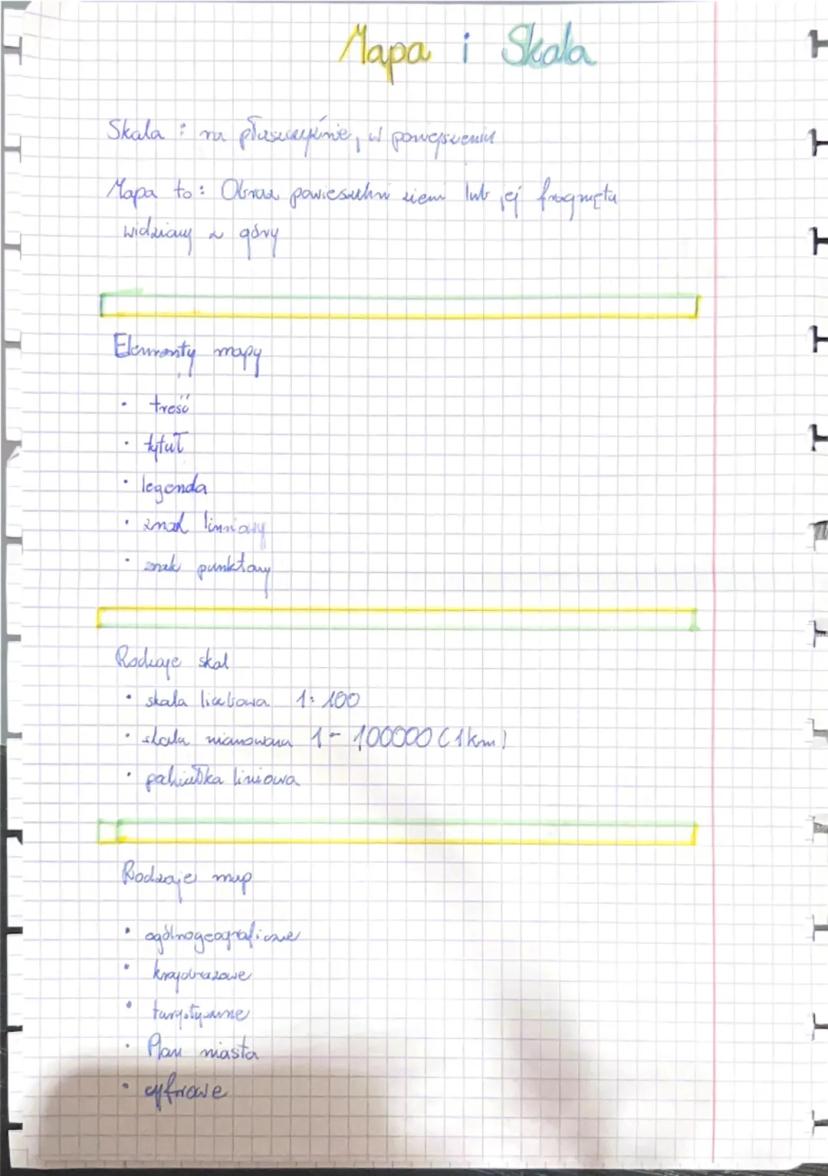 Mapa i Skala
Skala : na płaszczyźnie, w
Mapa to: Obraz powieszchni ziemi lub jej fragmętu
widziany z góry
Elementy mapy
• treść
• tytuł
• legenda
• znak linniowy
• znak punktowy
Rodzaje skal
• skala liczbowa 1: 100
• skala mianowana 1 - 100000 (1km)
• podziałka liniowa
Rodzaje map
• ogólnogeograficzne
• krajobrazowe
• turystyczne
• Plan miasta
• cyfrowe